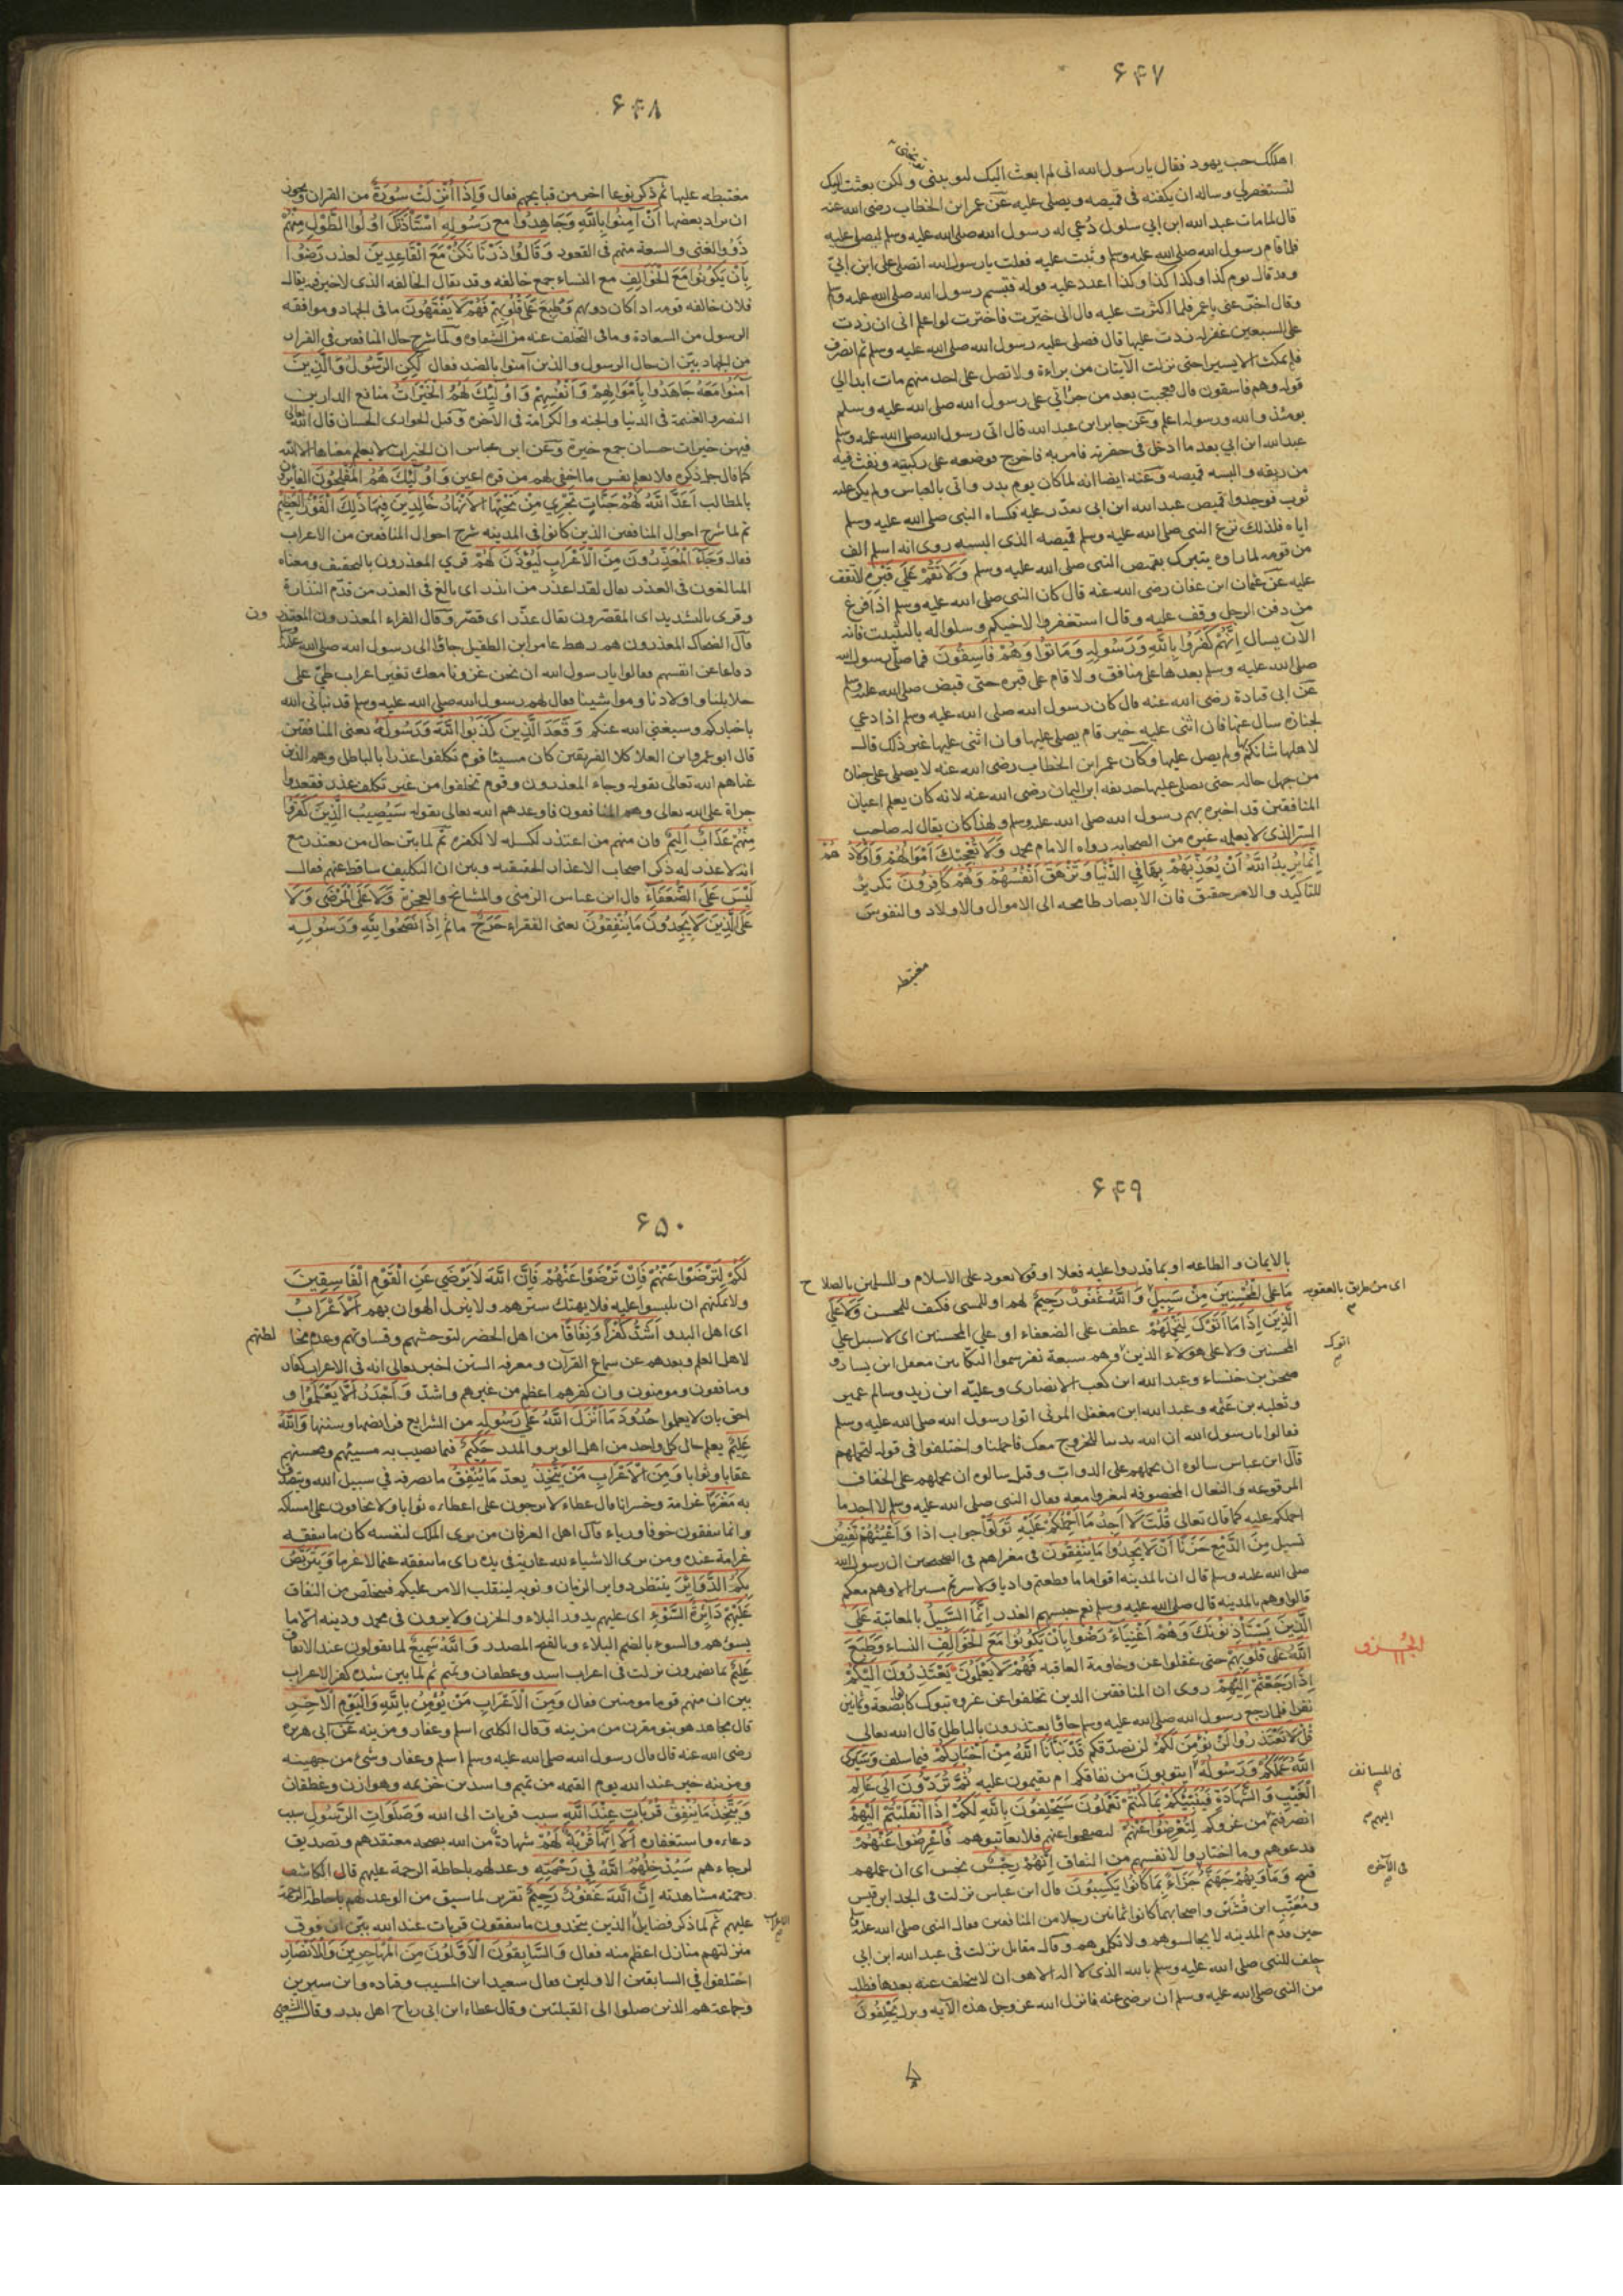 ۶۴۷
اهلكك حب يهود فقال يا رسول الله انى لم ابعث اليك لتوبخنى ولكن بعثت اليك
لتستغفرلى وساله ان يكفنه فى قميصه ويصلى عليه عن عمر ابن الخطاب رضى الله عنه
قال لما مات عبد الله ابن ابي سلول دُعي له رسول الله صلى الله عليه وسلم ليصلى عليه
فلما قام رسول الله صلى الله عليه وسلم وثبت عليه فقلت يا رسول الله اتصلى على ابن ابيّ
وقد قال يوم كذا وكذا كذا وكذا اعدد عليه قوله فتبسم رسول الله صلى الله عليه وسلم
وقال اخّر عنى يا عمر فلما اكثرت عليه قال انى خيّرت فاخترت لو اعلم انى ان زدت
على السبعين غفر له زدت عليها قال فصلى عليه رسول الله صلى الله عليه وسلم ثم انصرف
فلم يمكث الا يسيرا حتى نزلت الآيتان من براءة ولا تصل على احد منهم مات ابدا الي
قوله وهم فاسقون قال فعجبت بعد من جرأتي على رسول الله صلى الله عليه وسلم
يومئذ والله ورسوله اعلم وعن جابر ابن عبد الله قال اتى رسول الله صلى الله عليه وسلم
عبد الله ابن ابي بعد ما ادخل فى حفرته فامر به فاخرج فوضعه على ركبتيه ونفث فيه
من ريقه والبسه قميصه وعنه ايضا انه لما كان يوم بدر واتى بالعباس ولم يكن عليه
ثوب فوجدوا قميص عبد الله ابن ابى يقدّر عليه فكساه النبى صلى الله عليه وسلم
اياه فلذلك نزع النبى صلى الله عليه وسلم قميصه الذى البسه روى انه اسلم الف
من قومه لما راوه يتبرك بقميص النبى صلى الله عليه وسلم وَلَا تَقُمْ عَلَى قَبْرِهِ لا تقف
عليه عن عثمان ابن عفان رضى الله عنه قال كان النبى صلى الله عليه وسلم اذا فرغ
من دفن الرجل وقف عليه وقال استغفروا لاخيكم وسلوا له بالتثبيت فانه
الآن يسال اِنَّهُمْ كَفَرُوا بِاللَّهِ وَرَسُولِهِ وَمَاتُوا وَهُمْ فَاسِقُونَ فما صلّى رسول الله
صلى الله عليه وسلم بعدها على منافق ولا قام على قبره حتى قبض صلى الله عليه وسلم
عن ابى قتادة رضى الله عنه قال كان رسول الله صلى الله عليه وسلم اذا دعي
لجنازة سال عنها فان اثنى عليه خير قام يصلى عليها وان اثنى عليها غير ذلك قال
لاهلها شانكم بها ولم يصل عليها وكان عمر ابن الخطاب رضى الله عنه لا يصلى على جنازة
من جهل حاله حتى يصلى عليها حذيفه ابن اليمان رضى الله عنه لانه كان يعلم اعيان
المنافقين قد اخبره بهم رسول الله صلى الله عليه وسلم ولهذا كان يقال له صاحب
السر الذى لا يعلمه غيره من الصحابه رواه الامام محمد وَلَا تُعْجِبْكَ اَمْوَالُهُمْ وَاَوْلَادُ هُمْ
اِنَّمَا يُرِيدُ اللَّهُ اَنْ يُعَذِّبَهُمْ بِهَا فِي الدُّنْيَا وَتَزْهَقَ اَنْفُسُهُمْ وَهُمْ كَافِرُونَ تكرير
للتاكيد والامر حقيق فان الابصار طامحه الى الاموال والاولاد والنفوس
مغتبطه
۶۴۸
مغتبطه عليها ثم ذكر نوعا اخر من قبايحهم فقال وَاِذَا اُنْزِلَتْ سُورَةٌ من القران ويجوز
ان يراد بعضها اَنْ آمِنُوا بِاللَّهِ وَجَاهِدُوا مع رَسُولِهِ اسْتَأْذَنَكَ اُولُوا الطَّوْلِ مِنْهُمْ
ذوو الغنى والسعة منهم فى القعود وَقَالُوا ذَرْنَا نَكُنْ مَعَ الْقَاعِدِينَ لعذر رَضُوا
بِاَنْ يَكُونُوا مَعَ الْخَوَالِفِ مع النساء جمع خالفه وقد يقال الخالفه الذى لاخير فيه يقال
فلان خالفه قومه اذا كان دونهم وَطُبِعَ عَلَى قُلُوبِهِمْ فَهُمْ لَا يَفْقَهُونَ ما فى الجهاد وموافقه
الرسول من السعادة وما فى التخلف عنه من الشقاوه ولما شرح حال المنافقين فى الفرار
من الجهاد بيّن ان حال الرسول والذين آمنوا بالضد فقال لَكِنِ الرَّسُولُ وَالَّذِينَ
آمَنُوا مَعَهُ جَاهَدُوا بِاَمْوَالِهِمْ وَاَنْفُسِهِمْ وَاُولَئِكَ لَهُمُ الْخَيْرَاتُ منافع الدارين
النصر والغنيمة فى الدنيا والجنه والكرامة فى الآخره وقيل الحوارى الحسان قال الله تعالى
فيهن خيرات حسان جمع خيرة وعن ابن عباس ان الخيرات لا يعلم معناها الا الله
كما قال جل ذكره فلا تعلم نفس ما اخفى لهم من قرة اعين وَاُولَئِكَ هُمُ الْمُفْلِحُونَ الفائزون
بالمطالب اَعَدَّ اللَّهُ لَهُمْ جَنَّاتٍ تَجْرِي مِنْ تَحْتِهَا الْاَنْهَارُ خَالِدِينَ فِيهَا ذَلِكَ الْفَوْزُ الْعَظِيمُ
ثم لما شرح احوال المنافقين الذين كانوا فى المدينه شرح احوال المنافقين من الاعراب
فقال وَجَاءَ الْمُعَذِّرُونَ مِنَ الْاَعْرَابِ لِيُؤْذَنَ لَهُمْ قري المعذرون بالتخفيف ومعناه
المبالغون فى العذر يقال لقد اعذر من انذر اى بالغ فى العذر من قدّم النذارة
وقرى بالتشديد اى المقصّرون يقال عذّر اى قصّر وقال الفراء المعذرون المعتذر ون
قال الضحاك المعذرون هم رهط عامر ابن الطفيل جاؤا الى رسول الله صلى الله عليه وسلم
دفاعا عن انفسهم فقالوا يا رسول الله ان نحن غزونا معك تغير اعراب طيّ على
حلايلنا واولادنا ومواشينا فقال لهم رسول الله صلى الله عليه وسلم قد نبأنى الله
باخباركم وسيغني الله عنكم وَقَعَدَ الَّذِينَ كَذَبُوا اللَّهَ وَرَسُولَهُ يعنى المنافقين
قال ابو عمرو ابن العلا كلا الفريقين كان مسيئا قوم تكلفوا عذرا بالباطل وهم الذين
عناهم الله تعالى بقوله وجاء المعذرون وقوم تخلفوا من غير تكلف عذر فقعدوا
جراة على الله تعالى وهم المنافقون فاوعدهم الله تعالى بقوله سَيُصِيبُ الَّذِينَ كَفَرُوا
مِنْهُمْ عَذَابٌ اَلِيمٌ فان منهم من اعتذر لكسله لا لكفره ثم لما بيّن حال من يعتذر مع
انه لا عذر له ذكر اصحاب الاعذار الحقيقيه وبين ان التكليف ساقط عنهم فقال
لَيْسَ عَلَى الضُّعَفَاءِ قال ابن عباس الزمنى والمشايخ والعجزة وَلَا عَلَى الْمَرْضَى وَلَا
عَلَى الَّذِينَ لَا يَجِدُونَ مَا يُنْفِقُونَ يعنى الفقراء حَرَجٌ ماثم اِذَا نَصَحُوا لِلَّهِ وَرَسُولِهِ
۶۴۹
بالايمان والطاعه او بما قدروا عليه فعلا او قولا يعود على الاسلام والمسلمين بالصلا ح
مَا عَلَى الْمُحْسِنِينَ مِنْ سَبِيلٍ وَاللَّهُ غَفُورٌ رَحِيمٌ لهم او للمسى فكيف للمحسن وَلَا عَلَى
اى من طريق بالعقوبه
الَّذِينَ اِذَا مَا اَتَوْكَ لِتَحْمِلَهُمْ عطف على الضعفاء او على المحسنين اى لا سبيل على
اتوك
المحسنين ولا على هؤلاء الذين وهم سبعة نفر سموا البكائين معقل ابن يسار و
صخر بن خنساء وعبد الله ابن كعب الانصارى وعليّه ابن زيد وسالم عمير
وثعلبه بن غنمه وعبد الله ابن مغفل المزنى اتوا رسول الله صلى الله عليه وسلم
فقالوا يا رسول الله ان الله ندبنا للخروج معك فاحملنا واختلفوا فى قوله لتحملهم
قال ابن عباس سالوه ان يحملهم على الدواب وقيل سالوه ان يحملهم على الخفاف
المرقوعه والنعال المخصوفه ليغزوا معه فقال النبى صلى الله عليه وسلم لا اجد ما
احملكم عليه كما قال تعالى قُلْتَ لَا اَجِدُ مَا اَحْمِلُكُمْ عَلَيْهِ تَوَلَّوْا جواب اذا وَاَعْيُنُهُمْ تَفِيضُ
تسيل مِنَ الدَّمْعِ حَزَنًا اَنْ لَا يَجِدُوا مَا يُنْفِقُونَ فى مغزاهم فى الصحيحين ان رسول الله
صلى الله عليه وسلم قال ان بالمدينه اقواما ما قطعتم واديا ولا سرتم مسيرا الا وهم معكم
قالوا وهم بالمدينه قال صلى الله عليه وسلم نعم حبسهم العذر اِنَّمَا السَّبِيلُ بالمعاتبة عَلَى
الَّذِينَ يَسْتَأْذِنُونَكَ وَهُمْ اَغْنِيَاءُ رَضُوا بِاَنْ يَكُونُوا مَعَ الْخَوَالِفِ النساء وَطَبَعَ
اللَّهُ عَلَى قُلُوبِهِمْ حتى غفلوا عن وخامة العاقبه فَهُمْ لَا يَعْلَمُونَ يَعْتَذِرُونَ اِلَيْكُمْ
اِذَا رَجَعْتُمْ اِلَيْهِمْ روى ان المنافقين الذين تخلفوا عن غزوه تبوك كانوا بضعة وثمانين
نفرا فلما رجع رسول الله صلى الله عليه وسلم جاؤا يعتذرون بالباطل قال الله تعالى
قُلْ لَا تَعْتَذِرُوا لَنْ نُؤْمِنَ لَكُمْ لن نصدقكم قَدْ نَبَّأَنَا اللَّهُ مِنْ اَخْبَارِكُمْ فيما سلف وَسَيَرَى
اللَّهُ عَمَلَكُمْ وَرَسُولُهُ اتتوبون من نفاقكم ام تقيمون عليه ثُمَّ تُرَدُّونَ اِلَى عَالِمِ
فى المستانف
الْغَيْبِ وَالشَّهَادَةِ فَيُنَبِّئُكُمْ بِمَا كُنْتُمْ تَعْمَلُونَ سَيَحْلِفُونَ بِاللَّهِ لَكُمْ اِذَا انْقَلَبْتُمْ اِلَيْهِمْ
انصرفتم من غزوكم لِتُعْرِضُوا عَنْهُمْ لتصفحوا عنهم فلا تعاتبوهم فَاَعْرِضُوا عَنْهُمْ
اليهم
فدعوهم وما اختاروا لانفسهم من النفاق اِنَّهُمْ رِجْسٌ نجس اى ان عملهم
قبيح وَمَأْوَيهُمْ جَهَنَّمُ جَزَاءً بِمَا كَانُوا يَكْسِبُونَ قال ابن عباس نزلت فى الجد ابن قيس
فى الآخره
ومُعَتِّب ابن قُشَيْر واصحابهما كانوا ثمانين رجلا من المنافقين فقال النبى صلى الله عليه وسلم
حين قدم المدينه لا تجالسوهم ولا تكلموهم وقال مقاتل نزلت فى عبد الله ابن ابي
حلف للنبى صلى الله عليه وسلم بالله الذى لا اله الا هو ان لا يتخلف عنه بعدها فطلب
من النبى صلى الله عليه وسلم ان يرضى عنه فانزل الله عز وجل هذه الآيه ونزل يَحْلِفُونَ
الجزو
۶۵۰
لَكُمْ لِتَرْضَوْا عَنْهُمْ فَاِنْ تَرْضَوْا عَنْهُمْ فَاِنَّ اللَّهَ لَا يَرْضَى عَنِ الْقَوْمِ الْفَاسِقِينَ
ولا يمكنهم ان يلبسوا عليه فلا يهتك سترهم ولا ينزل الهوان بهم اَلْاَعْرَابُ
اى اهل البدو اَشَدُّ كُفْرًا وَنِفَاقًا من اهل الحضر لتوحشهم وقساوتهم وعدم مخا لطتهم
لاهل العلم وبعدهم عن سماع القرآن ومعرفه السنن اخبر تعالى انه فى الاعراب كفار
ومنافقون ومومنون وان كفرهم اعظم من غيرهم واشدّ وَاَجْدَرُ اَلَّا يَعْلَمُوا و
احق بان لا يعلموا حُدُودَ مَا اَنْزَلَ اللَّهُ عَلَى رَسُولِهِ من الشرايع فرايضها وسننها وَاللَّهُ
عَلِيمٌ يعلم حال كل واحد من اهل الوبر والمدر حَكِيمٌ فيما يصيب به مسيئهم ومحسنهم
عقابا وثوابا وَمِنَ الْاَعْرَابِ مَنْ يَتَّخِذُ يعدّ مَا يُنْفِقُ ما يصرفه فى سبيل الله ويتصدق
به مَغْرَمًا غرامة وخسرانا قال عطاء لا يرجون على اعطاءه ثوابا ولا يخافون على امساكه
وانما ينفقون خوفا ورياء قال اهل العرفان من يرى الملك لنفسه كان ما ينفقه
غرامة عنده ومن يرى الاشياء لله عارية فى يده راى ما ينفقه غنما لا غرما وَيَتَرَبَّصُ
بِكُمُ الدَّوَائِرَ ينتظر دواير الزمان ونوبه لينقلب الامر عليكم فيتخلص من النفاق
عَلَيْهِمْ دَائِرَةُ السَّوْءِ اى عليهم يدور البلاء والحزن ولا يرون فى محمد ودينه الا ما
يسوءهم والسوء بالضم البلاء وبالفتح المصدر وَاللَّهُ سَمِيعٌ لما يقولون عند الانفاق
عَلِيمٌ بما يضمرون نزلت فى اعراب اسد وغطفان وتميم ثم لما بين شده كفر الاعراب
بين ان منهم قوما مومنين فقال وَمِنَ الْاَعْرَابِ مَنْ يُؤْمِنُ بِاللَّهِ وَالْيَوْمِ الْآخِرِ
قال مجاهد هم بنو مقرن من مزينه وقال الكلبى اسلم وغفار ومزينه عن ابى هريره
رضى الله عنه قال قال رسول الله صلى الله عليه وسلم اسلم وغفار وشئ من جهينه
ومزينه خير عند الله يوم القيمه من تميم واسد بن خزيمه وهوازن وغطفان
وَيَتَّخِذُ مَا يُنْفِقُ قُرُبَاتٍ عِنْدَ اللَّهِ سبب قربات الى الله وَصَلَوَاتِ الرَّسُولِ سبب
دعاءه واستغفاره اَلَا اِنَّهَا قُرْبَةٌ لَهُمْ شهادة من الله بصحه معتقدهم وتصديق
لرجاءهم سَيُدْخِلُهُمُ اللَّهُ فِي رَحْمَتِهِ وعد لهم باحاطة الرحمة عليهم قال الكاشف
رحمته مشاهدته اِنَّ اللَّهَ غَفُورٌ رَحِيمٌ تقرير لما سبق من الوعد لهم باحاطه الرحمة
عليهم ثم لما ذكر فضايل الذين يتخذون ما ينفقون قربات عند الله بيّن ان فوق
الاعراب
منزلتهم منازل اعظم منه فقال وَالسَّابِقُونَ الْاَوَّلُونَ مِنَ الْمُهَاجِرِينَ وَالْاَنْصَارِ
اختلفوا في السابقين الاولين فقال سعيد ابن المسيب وقتاده وابن سيرين
وجماعة هم الذين صلوا الى القبلتين وقال عطاء ابن ابى رباح اهل بدر وقال الشعبي